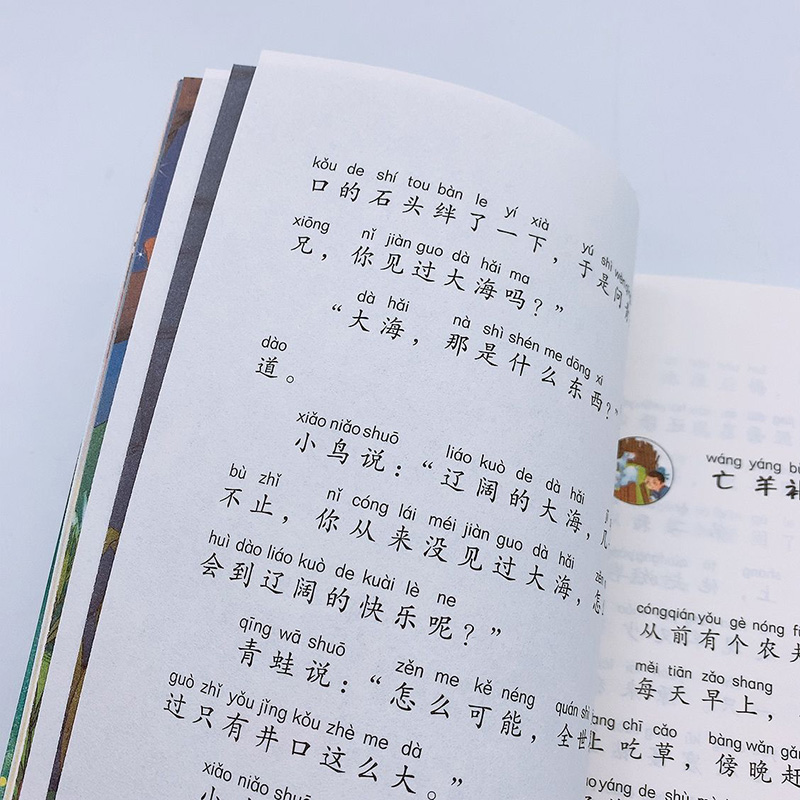 kǒu de shí tou bàn le yí xià
口的石头绊了一下，于是问
xiōng nǐ jiàn guo dà hǎi ma
兄，你见过大海吗？”
dà hǎi nà shì shén me dōng xi
“大海，那是什么东西？”
dào
道。
xiǎo niǎo shuō liáo kuò de dà hǎi
小鸟说：“辽阔的大海，
bù zhǐ nǐ cóng lái méi jiàn guo dà hǎi
不止，你从来没见过大海，怎
huì dào liáo kuò de kuài lè ne
会到辽阔的快乐呢？”
qīng wā shuō zěn me kě néng quán shì
青蛙说：“怎么可能，全世
guò zhǐ yǒu jǐng kǒu zhè me dà
过只有井口这么大。”
xiǎo niǎo shuō
小鸟说
wáng yáng bǔ
亡羊补
cóng qián yǒu gè nóng fū
从前有个农夫
měi tiān zǎo shang
每天早上，
shang chī cǎo bàng wǎn gǎn
上吃草，傍晚赶
yáng de shù